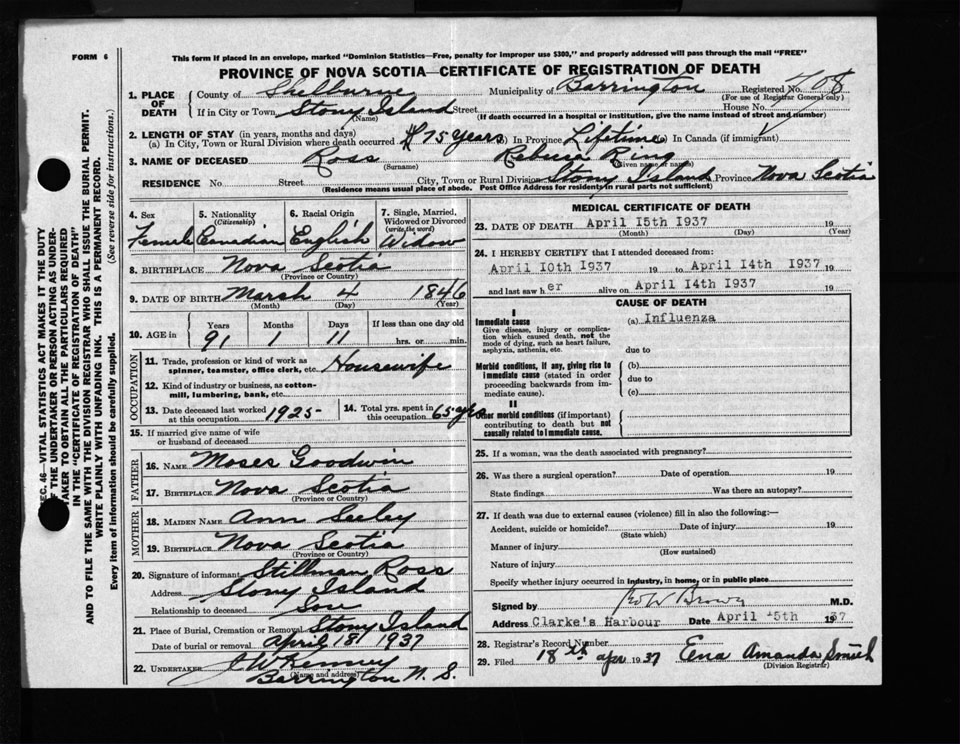 FORM 6
This form if placed in an envelope, marked "Dominion Statistics—Free, penalty for improper use $300," and properly addressed will pass through the mail "FREE"
PROVINCE OF NOVA SCOTIA—CERTIFICATE OF REGISTRATION OF DEATH
1. PLACE OF DEATH
County of Shelburne Municipality of Barrington Registered No. 708
(For use of Registrar General only)
If in City or Town, Stony Island Street House No.
(Name) (If death occurred in a hospital or institution, give the name instead of street and number)
2. LENGTH OF STAY (in years, months and days)
(a) In City, Town or Rural Division where death occurred 75 years (b) In Province Lifetime (c) In Canada (if immigrant)
3. NAME OF DECEASED Ross Rebecca Ring
(Surname) (Given name or names)
RESIDENCE No. Street City, Town or Rural Division Stony Island Province Nova Scotia
(Residence means usual place of abode. Post Office Address for residents in rural parts not sufficient)
4. Sex Female
5. Nationality (Citizenship) Canadian
6. Racial Origin English
7. Single, Married, Widowed or Divorced (write the word) Widow
8. BIRTHPLACE Nova Scotia
(Province or Country)
9. DATE OF BIRTH March 4 1846
(Month) (Day) (Year)
10. AGE in Years 91 Months 1 Days 11 If less than one day old hrs. or min.
OCCUPATION
11. Trade, profession or kind of work as spinner, teamster, office clerk, etc. Housewife
12. Kind of industry or business, as cotton-mill, lumbering, bank, etc.
13. Date deceased last worked at this occupation 1925-
14. Total yrs. spent in this occupation 65 yrs
15. If married give name of wife or husband of deceased
FATHER
16. NAME Moses Goodwin
17. BIRTHPLACE Nova Scotia
(Province or Country)
MOTHER
18. MAIDEN NAME Ann Seeley
19. BIRTHPLACE Nova Scotia
(Province or Country)
20. Signature of informant Stillman Ross
Address Stony Island
Relationship to deceased Son
21. Place of Burial, Cremation or Removal Stony Island
Date of burial or removal April 18 1937
22. UNDERTAKER J W Kenney
(Name and address)
Barrington N. S.
MEDICAL CERTIFICATE OF DEATH
23. DATE OF DEATH April 15th 1937 19
(Month) (Day) (Year)
24. I HEREBY CERTIFY that I attended deceased from:
April 10th 1937 19 to April 14th 1937 19
and last saw her alive on April 14th 1937 19
CAUSE OF DEATH
I
Immediate cause
Give disease, injury or complication which caused death, not the mode of dying, such as heart failure, asphyxia, asthenia, etc.
(a) Influenza
due to
Morbid conditions, if any, giving rise to immediate cause (stated in order proceeding backwards from immediate cause).
(b)
due to
(c)
II
Other morbid conditions (if important) contributing to death but not causally related to immediate cause.
25. If a woman, was the death associated with pregnancy?
26. Was there a surgical operation? Date of operation 19
State findings Was there an autopsy?
27. If death was due to external causes (violence) fill in also the following:—
Accident, suicide or homicide? Date of injury 19
(State which)
Manner of injury
(How sustained)
Nature of injury
Specify whether injury occurred in industry, in home, or in public place
Signed by Brown M.D.
Address Clarke's Harbour Date April 15th 1937
28. Registrar's Record Number
29. Filed 18th Apr 1937 Ena Amanda Smith
(Division Registrar)
SEC. 46—VITAL STATISTICS ACT MAKES IT THE DUTY
OF THE UNDERTAKER OR PERSON ACTING AS UNDER-
TAKER TO OBTAIN ALL THE PARTICULARS REQUIRED
IN THE "CERTIFICATE OF REGISTRATION OF DEATH"
AND TO FILE THE SAME WITH THE DIVISION REGISTRAR WHO SHALL ISSUE THE BURIAL PERMIT.
WRITE PLAINLY WITH UNFADING INK. THIS IS A PERMANENT RECORD.
Every item of information should be carefully supplied. (See reverse side for instructions.)